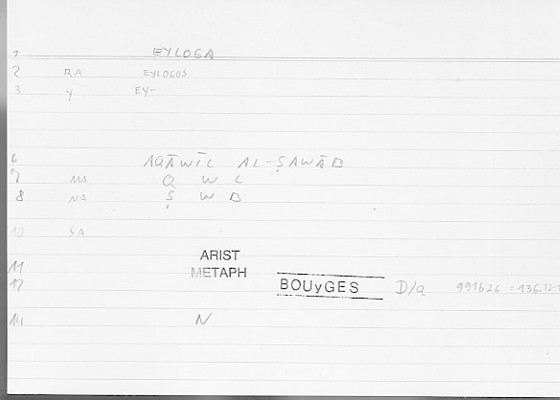 1 EYLOGA
2 RA EYLOGOS
3 Y EY-
6 AQĀWĪL AL-ṢAWĀB
7 MA Q W L
8 NA Ṣ W B
10 SA
11 ARIST
METAPH
12 BOUyGES D/a 991b26 = 136.12-
14 N